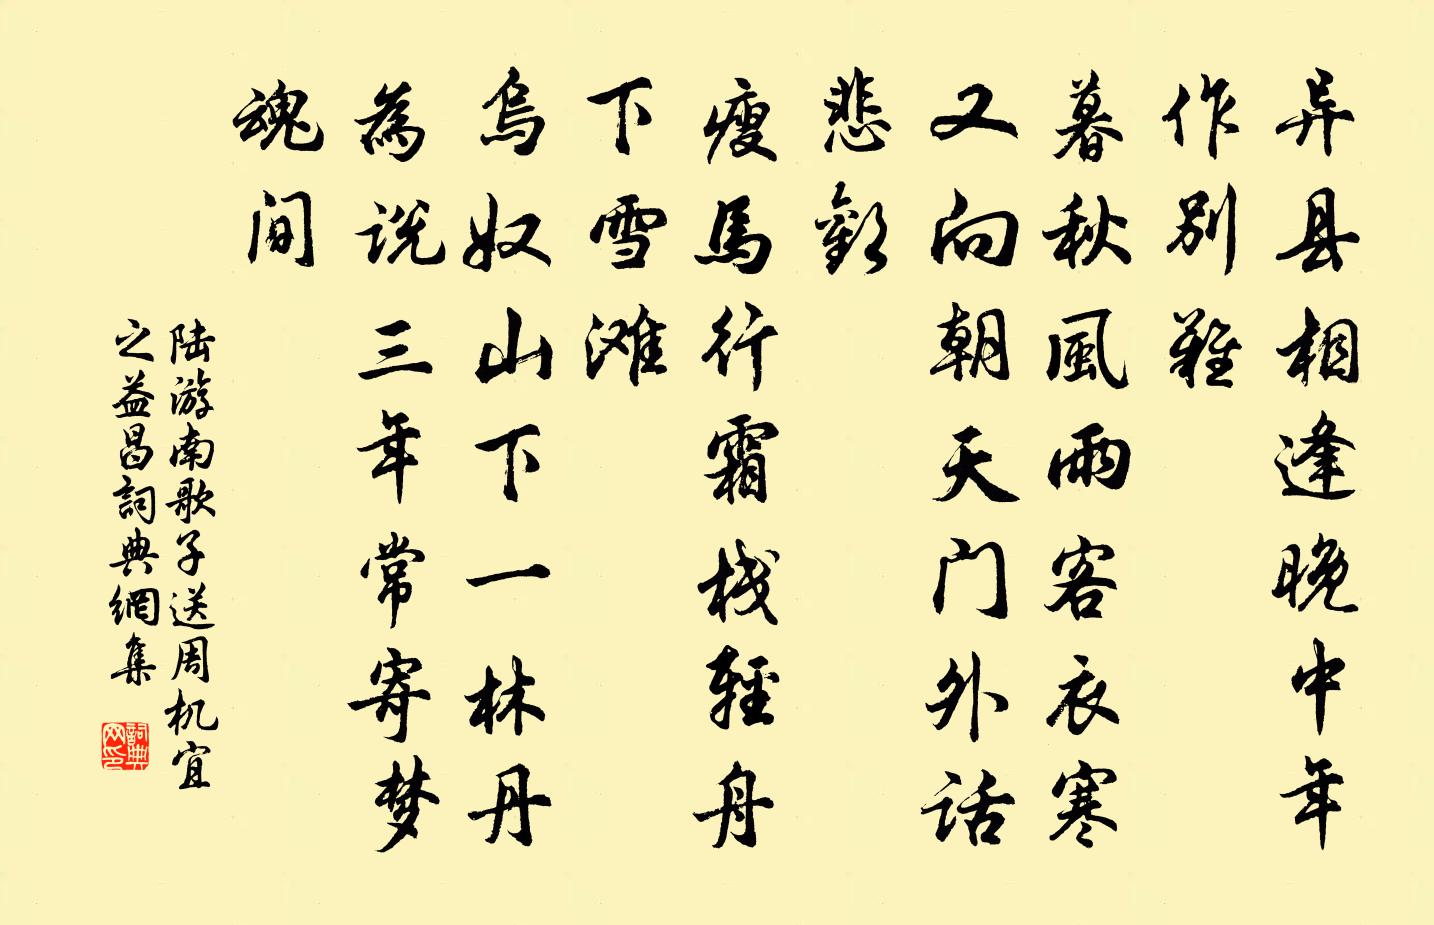 异县相逢晚中年
作别难
暮秋風雨客衣寒
又向朝天门外话
悲歡
瘦馬行霜栈輕舟
下雪滩
烏奴山下一林丹
為说三年常寄梦
魂间
陆游南歌子送周机宜
之益昌詞典網集
詞典网印